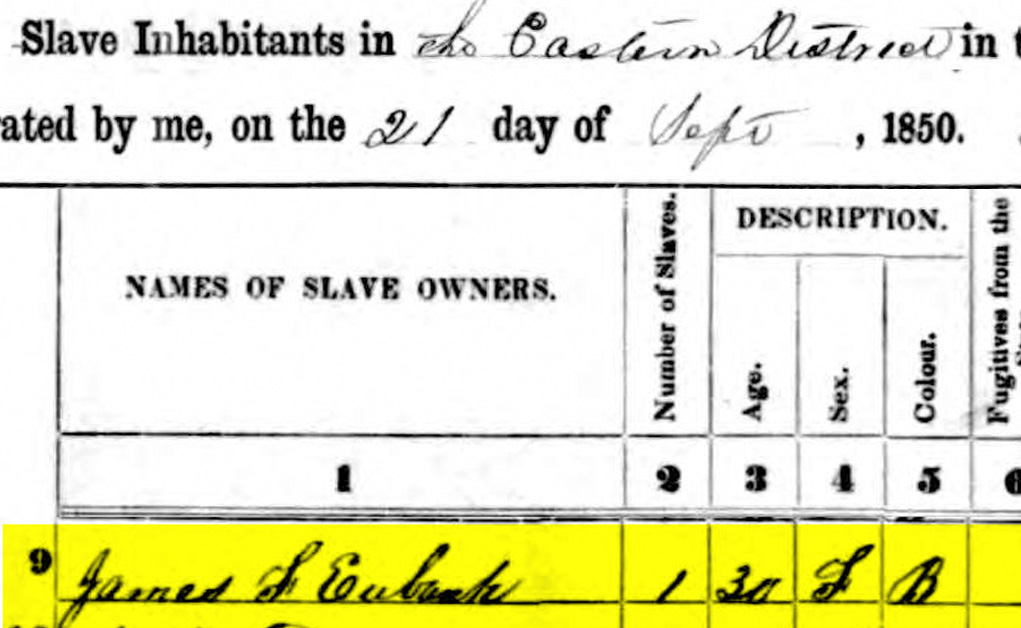 Slave Inhabitants in the Eastern District in t
ated by me, on the 21 day of Sept, 1850.
NAMES OF SLAVE OWNERS.
Number of Slaves.
DESCRIPTION.
Age.
Sex.
Colour.
Fugitives from the
1 2 3 4 5 6
9 James F Eubank 1 30 F B